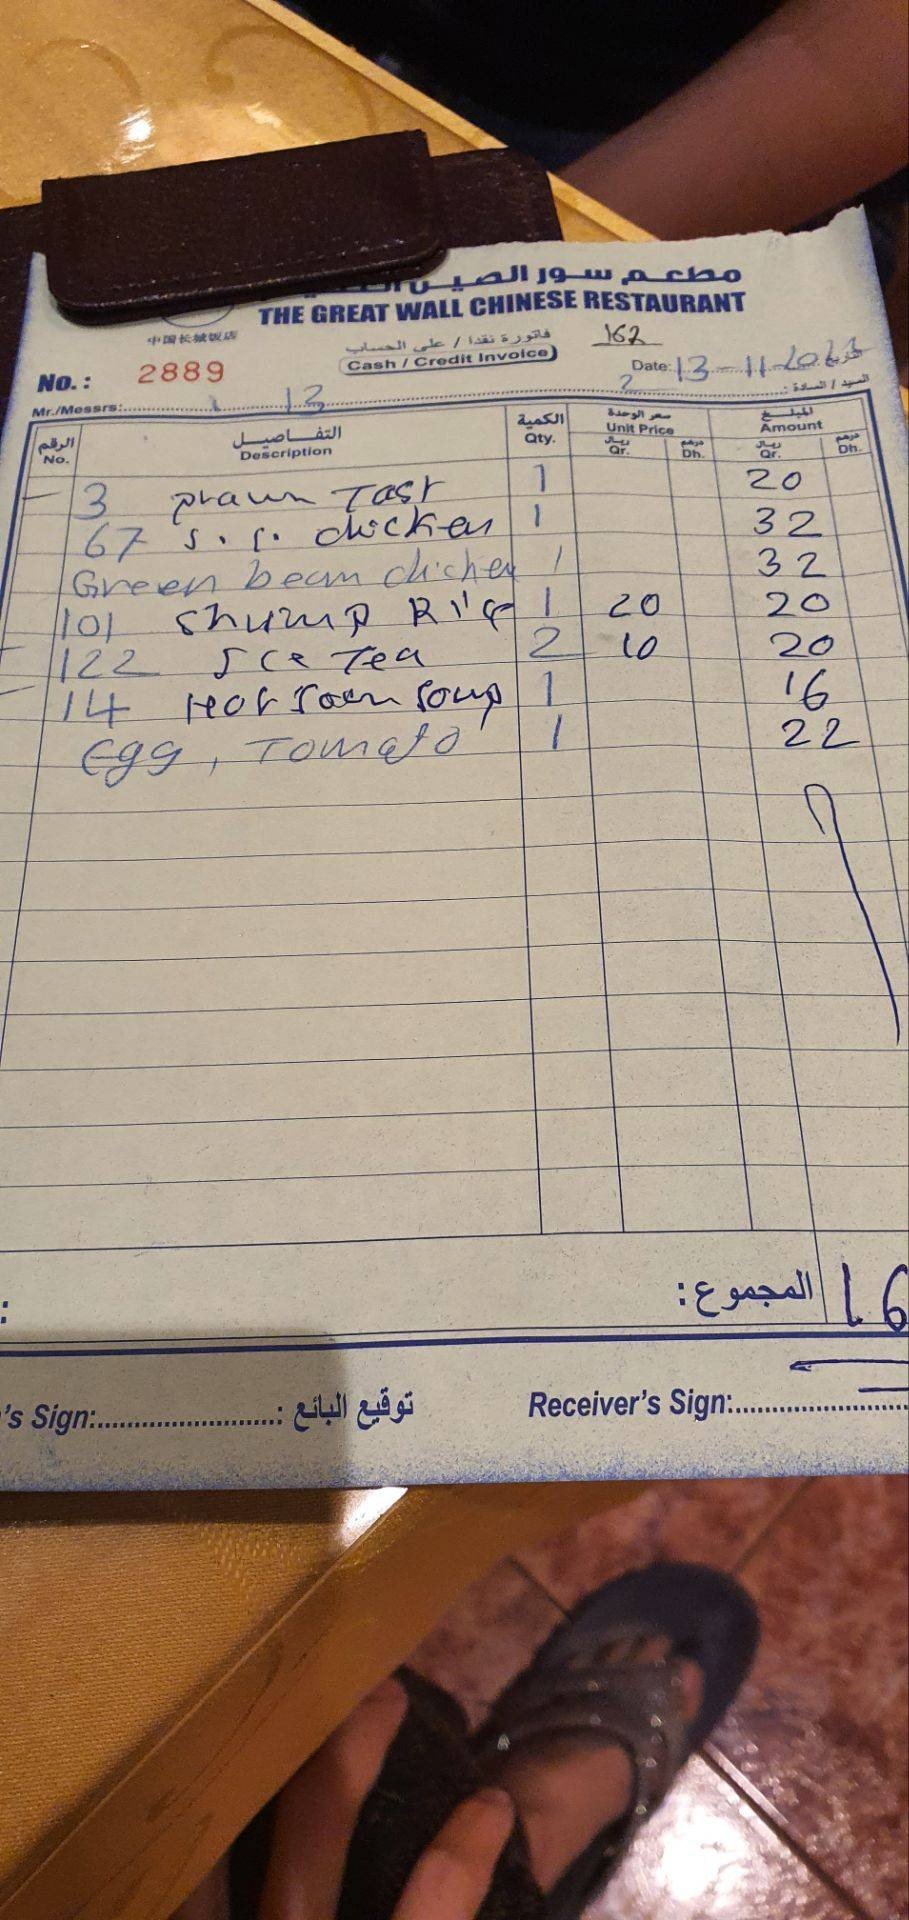 مطعم سور الصين
THE GREAT WALL CHINESE RESTAURANT
中国长城饭店
فاتورة نقدا / على الحساب
162
Cash / Credit Invoice
No.: 2889
Date: 13-11-
التاريخ
Mr./Messrs: 13 2 السيد / السادة :
الرقم التفـاصيـل الكمية سعر الوحدة المبلـغ
No. Description Qty. Unit Price Amount
ريال درهم ريال درهم
Qr. Dh. Qr. Dh.
3 prawn Tast 1 20
67 S.S. chicken 1 32
Green bean chicken 1 32
101 Shrimp Rice 1 20 20
122 Ice Tea 2 10 20
14 Hot Soup 1 16
Egg, Tomato 1 22
المجموع: 16
's Sign: توقيع البائع : Receiver's Sign: